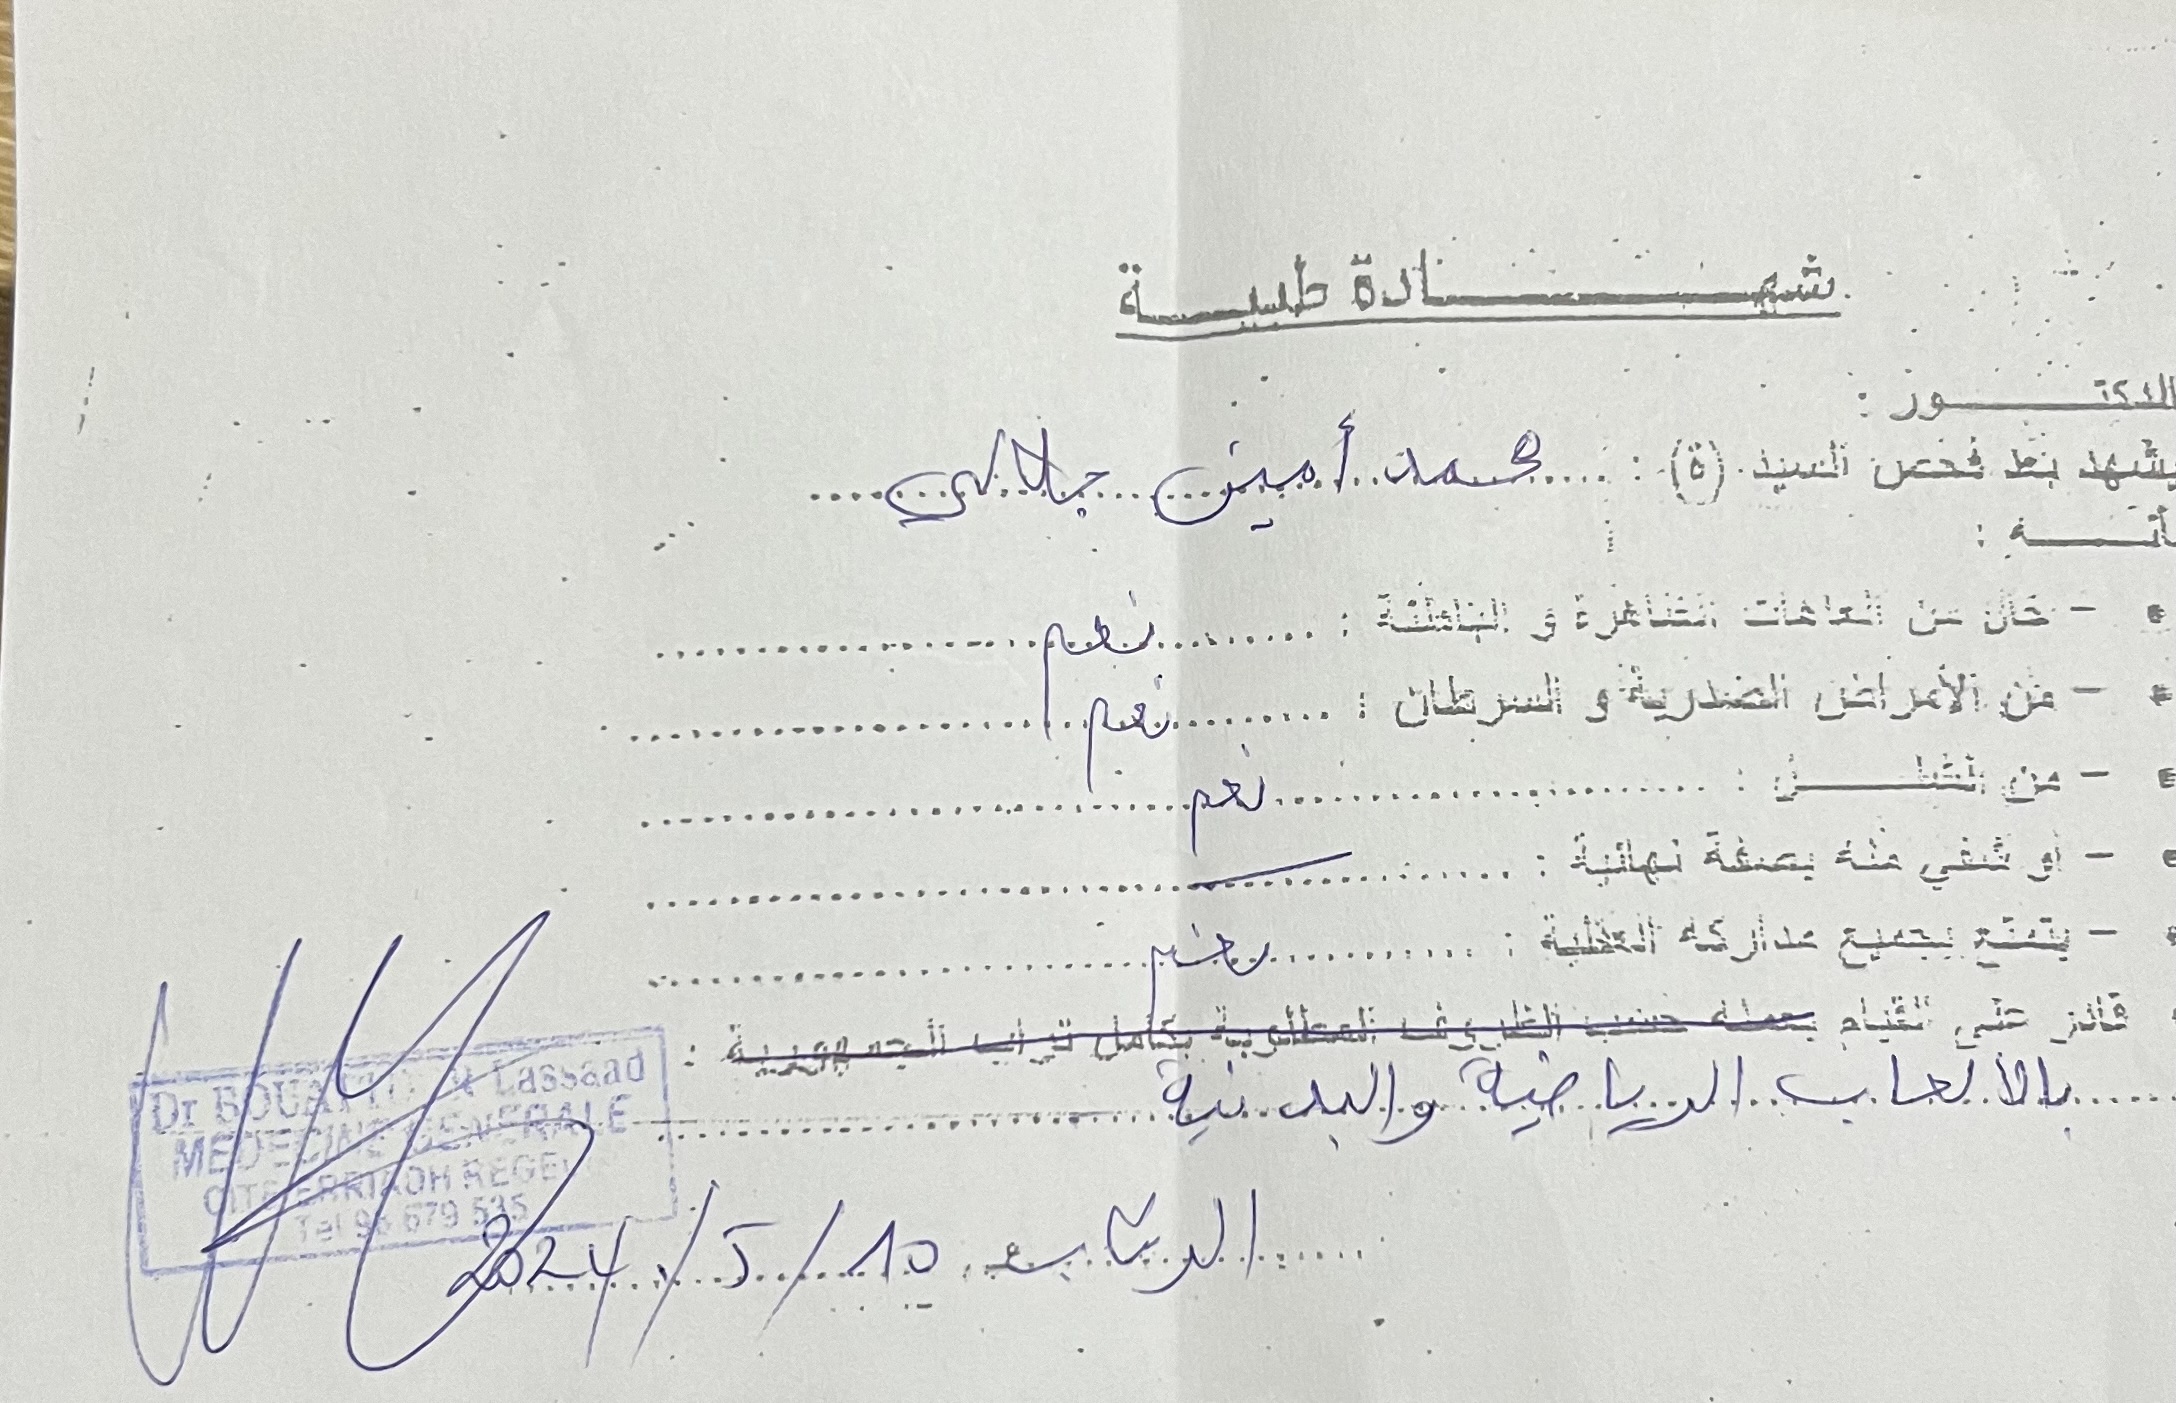 شهادة طبية
الدكتور :
يشهد بعد فحص السيد (ة) : محمد أمين جلالي
أنه :
- خال من العاهات الظاهرة و الباطنة : نعم
- من الأمراض الصدرية و السرطان : نعم
- من الشلل : نعم
- أو شفي منه بصفة نهائية :
- يتمتع بجميع مداركه العقلية : نعم
قادر على القيام بعمله حسب الظروف المطلوبة بكامل تراب الجمهورية :
بالألعاب الرياضية والبدنية
10/5/2024
Dr Lassaad
MEDECINE GENERALE
CITE ERRIADH REGE
Tel 679 535